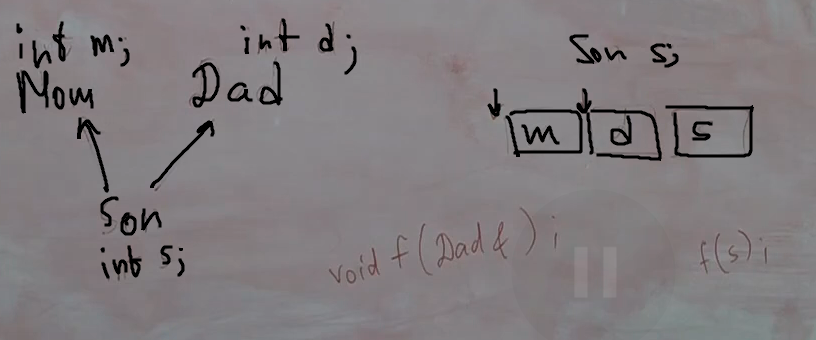 int m;
int d;
Mom
Dad
Son
int s;
Son s;
m
d
s
void f(Dad&);
f(s);